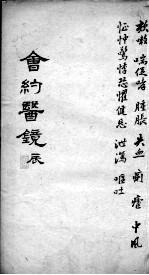 欬嗽 喘促哮 腫脹 失血 蘭 瘡 中風
怔忡驚悸恐懼健忘 泄瀉 嘔吐
會約醫鏡 辰